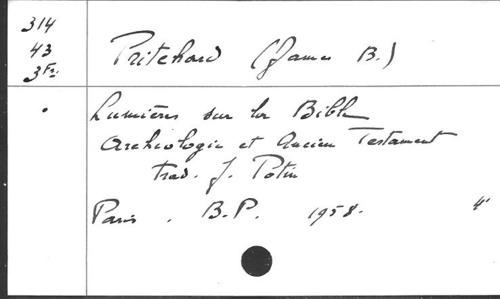 314
43
3 Fr.
Pritchard (James B.)
Lumières sur la Bible
Archéologie et Ancien Testament
trad. J. Potin
Paris. B.P. 1958. 4°